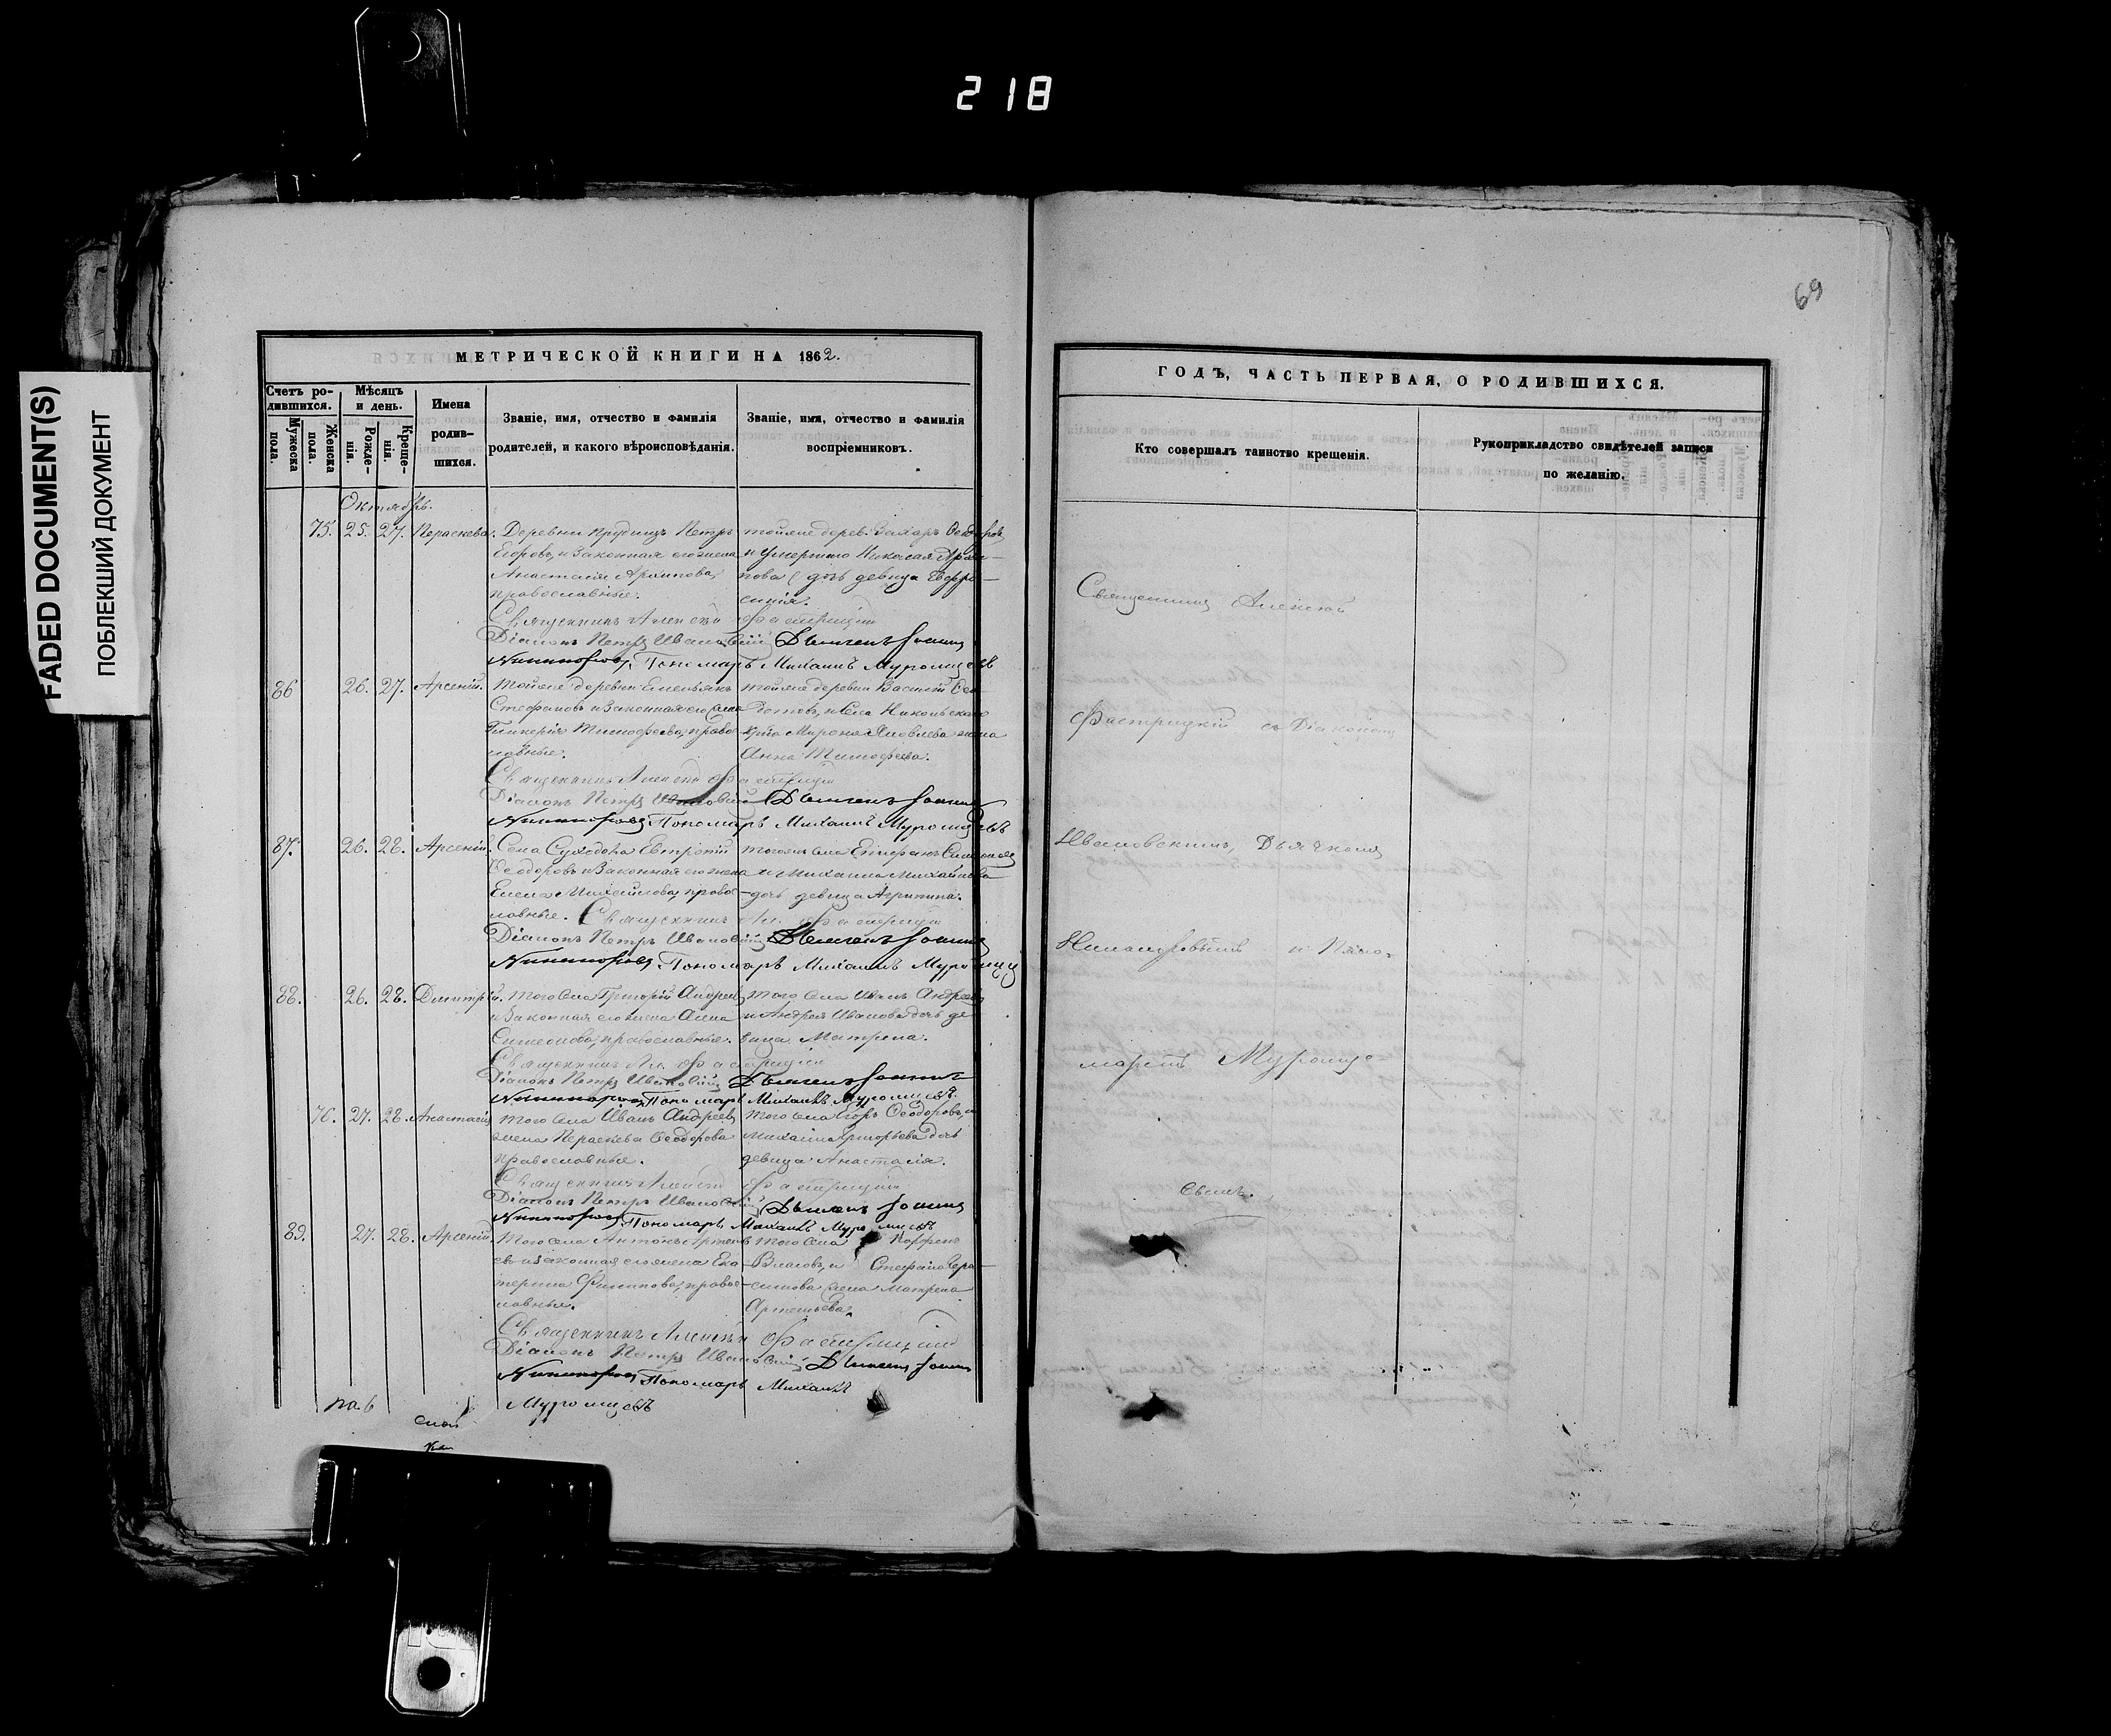 218
FADED DOCUMENT(S)
ПОБЛЕКШИЙ ДОКУМЕНТ
МЕТРИЧЕСКОЙ КНИГИ НА 1862.
Счетъ родившихся.
Мужеска пола.
Женска пола.
Мѣсяцъ и день.
Рожденія.
Крещенія.
Имена родившихся.
Званіе, имя, отчество и фамилія
родителей, и какого вѣроисповѣданія.
Званіе, имя, отчество и фамилія
воспріемниковъ.
Октябрь.
75. 25. 27. Параскева. Деревни Прудищъ Петръ
Егоровъ, и законная его жена
Анастасія Архипова,
православные.
тойже дерев. Захаръ Ѳеодоровъ
и умершаго Николая Архи-
пова дочь девица Евфро-
синія.
Священникъ Алексѣй
Діаконъ Петръ Ивановскій Дьячекъ Іоаннъ
Никаноровъ, Пономарь Михаилъ Муромцевъ
86 26. 27. Арсеній. Тойже деревни Емельянъ
Стефановъ и законная его жена
Гликерія Тимофеева, правос-
лавные.
тойже деревни Василій
и села Никольскаго
Мирона Яковлева жена
Анна Тимофеева.
Священникъ Алексѣй
Діаконъ Петръ Ивановскій Дьячекъ Іоаннъ
Никаноровъ Пономарь Михаилъ Муромцевъ
87. 26. 28. Арсеній. Села Суходола Евтропій
Ѳеодоровъ и законная его жена
Елена Михайлова, правос-
лавные.
тогоже села
и Михаила Михайлова
дочь девица Агрипина.
Священникъ Ал.
Діаконъ Петръ Ивановскій Дьячекъ Іоаннъ
Никаноровъ Пономарь Михаилъ
88. 26. 28. Димитрій. Того села Григорій Андреевъ
и законная его жена Анна
Симеонова, православные.
того села Иванъ Андреевъ
и Андрея Иванова дочь де-
вица Матрена.
Священникъ Ал.
Діаконъ Петръ Ивановскій Дьячекъ Іоаннъ
Никаноровъ Пономарь Михаилъ Муромцевъ.
76. 27. 28. Анастасія Того села Иванъ Андреевъ
жена Параскева Ѳеодорова
православные.
того села Егоръ Ѳеодоровъ, и
Михаила Григорьева дочь
девица Анастасія.
Священникъ Алексѣй
Діаконъ Петръ Ивановскій Дьячекъ Іоаннъ
Никаноровъ Пономарь Михаилъ Муромцевъ
89. 27. 28. Арсеній. Того села Антонъ
и законная его жена Ека-
терина Филипова, правос-
лавные.
того села
Власовъ, и Стефана Гера-
симова жена Матрена
Артемьева.
Священникъ Алексѣй
Діаконъ Петръ Ивановскій Дьячекъ Іоаннъ
Никаноровъ Пономарь Михаилъ
Муромцевъ
69
ГОДЪ, ЧАСТЬ ПЕРВАЯ, О РОДИВШИХСЯ.
Кто совершалъ таинство крещенія.
Рукоприкладство свидѣтелей записи
по желанію.
Священникъ Алексѣй
съ Діакономъ
Ивановскимъ, Дьячкомъ
Никаноровымъ и Поно-
маремъ Муромце-
вымъ.